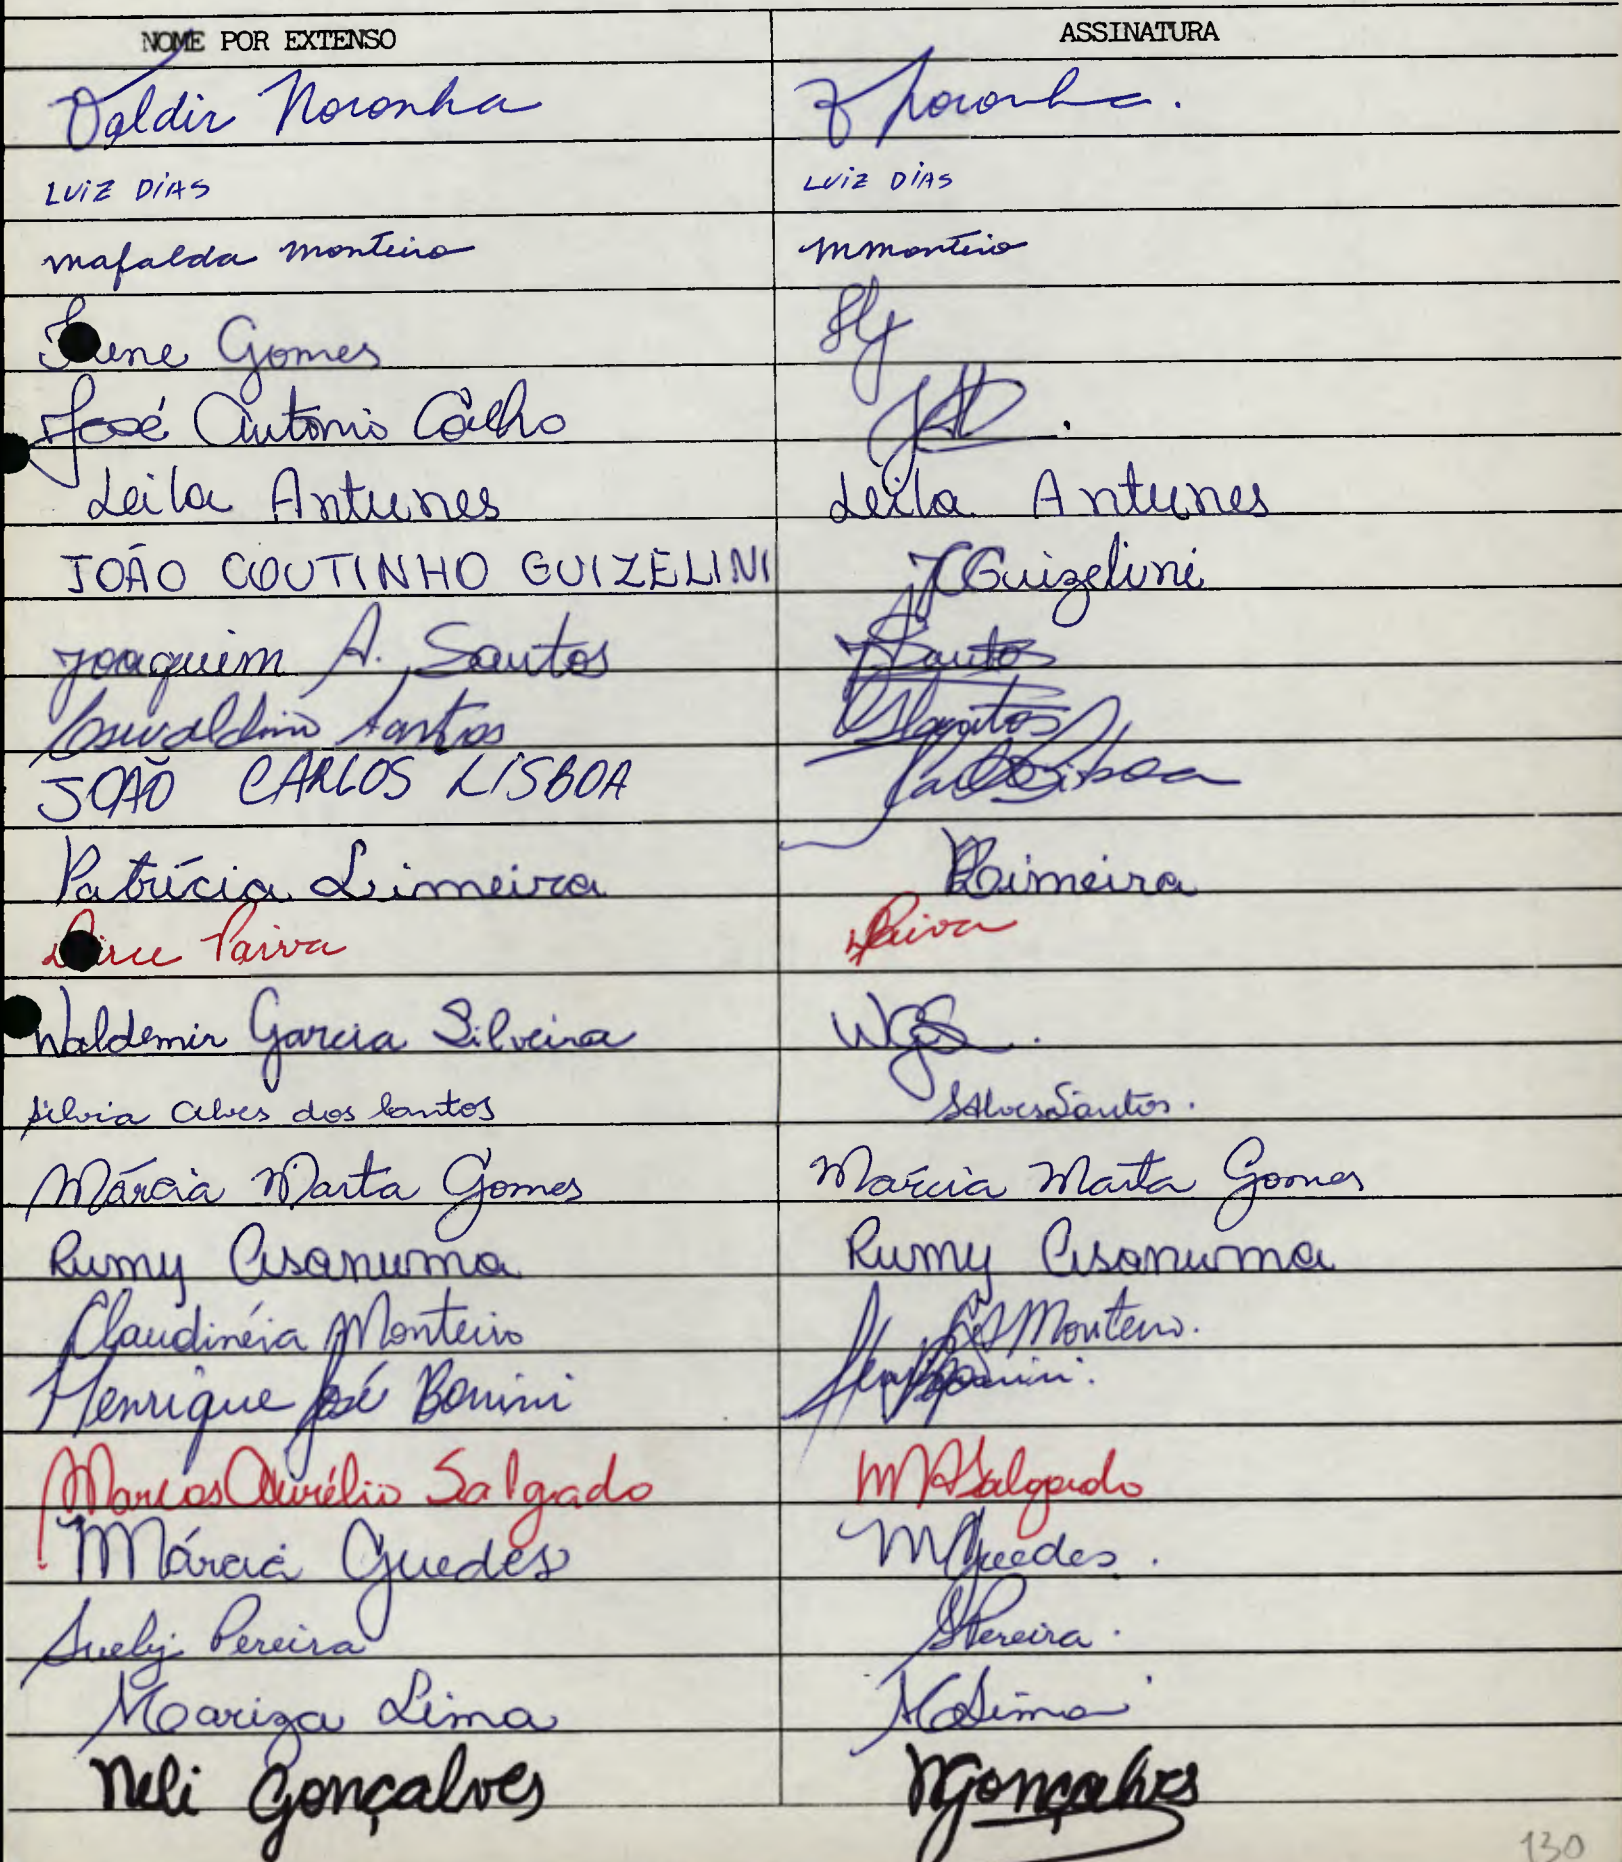 NOME POR EXTENSO ASSINATURA
Valdir Noronha Noronha.
LUIZ DIAS LUIZ DIAS
Mafalda Monteiro MMonteiro
Irene Gomes
José Antonio Coelho
Leila Antunes Leila Antunes
JOÃO COUTINHO GUIZELINI JCGuizelini
Joaquim A. Santos JSantos
Osvaldino Santos OSantos
JOÃO CARLOS LISBOA Lisboa
Patrícia Limeira PLimeira
Dirce Paiva DPaiva
Waldemir Garcia Silveira WGS.
Silvia Alves dos Santos SAlvesSantos.
Márcia Marta Gomes Márcia Marta Gomes
Rumy Asanuma Rumy Asanuma
Claudinéia Monteiro Monteiro.
Henrique José Bonini Bonini.
Marcos Aurélio Salgado MASalgado
Márcia Guedes MGuedes.
Suely Pereira SPereira.
Mariza Lima MLima
Neli Gonçalves NGonçalves
130